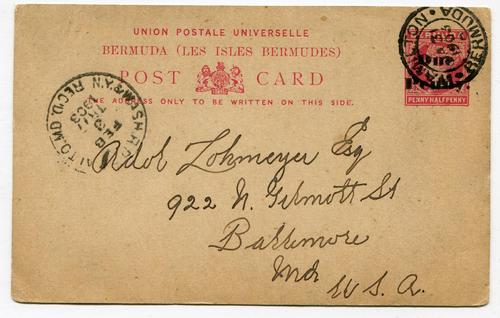 UNION POSTALE UNIVERSELLE
BERMUDA (LES ISLES BERMUDES)
POST CARD
THE ADDRESS ONLY TO BE WRITTEN ON THIS SIDE.
PENNY HALFPENNY
BERMUDA
REC'D.
FEB
Adol Lohmeyer Esq
922 N. Gilmott St
Baltimore
Md
U.S.A.